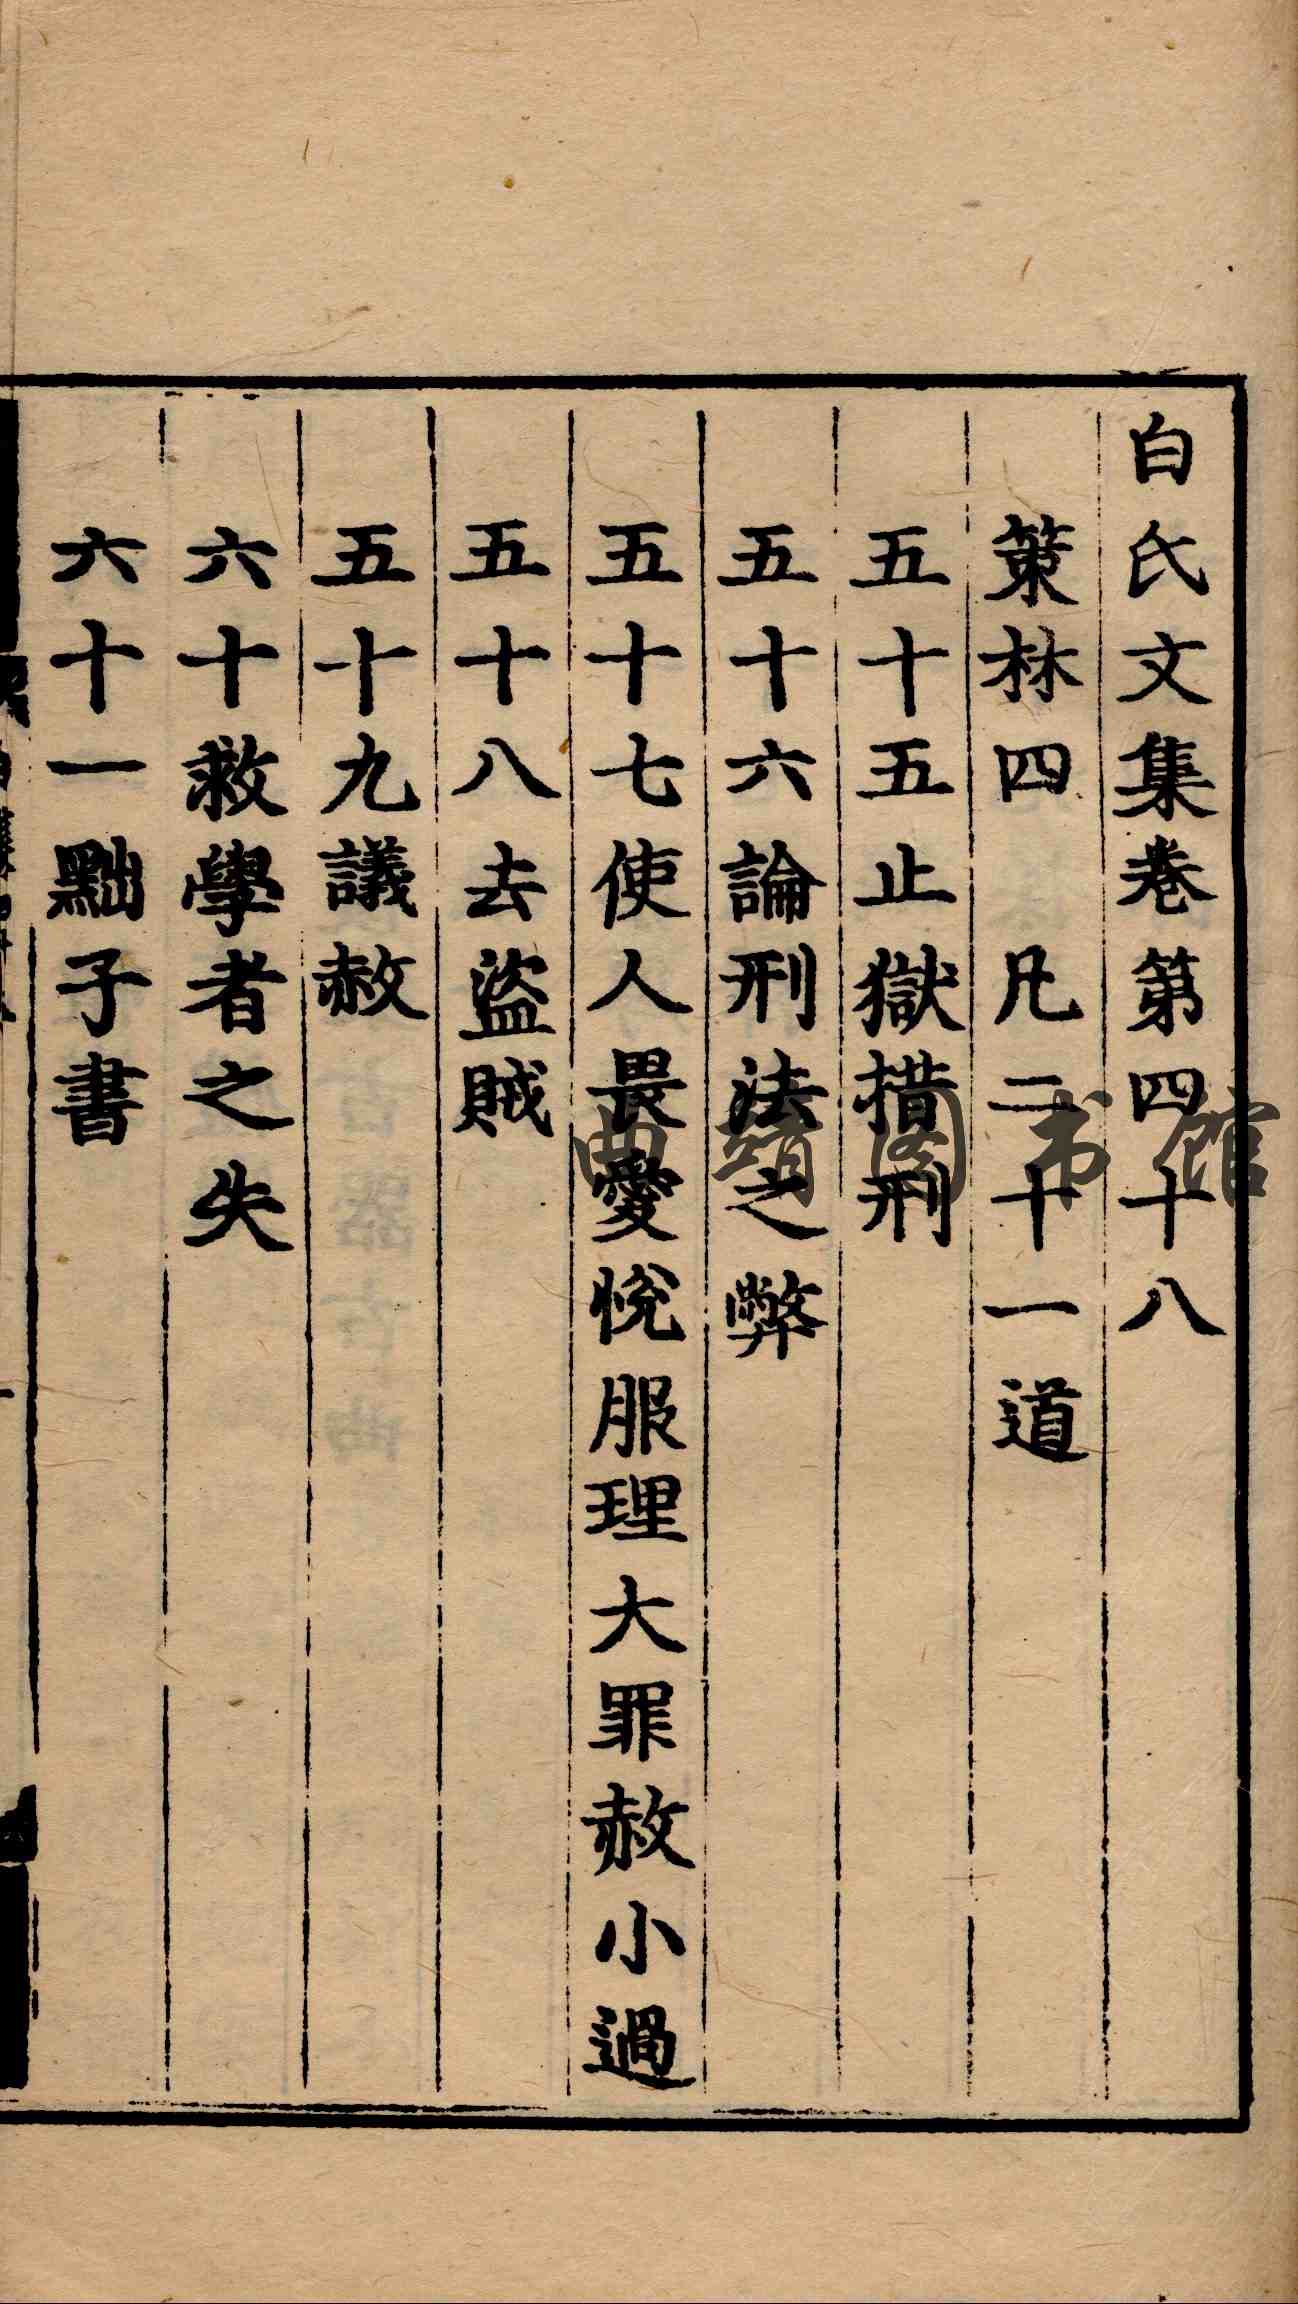 白氏文集卷第四十八
策林四　凡二十一道
五十五止獄措刑
五十六論刑法之弊
五十七使人畏愛悅服理大罪赦小過
五十八去盜賊
五十九議赦
六十救學者之失
六十一黜子書
曲靖图书馆